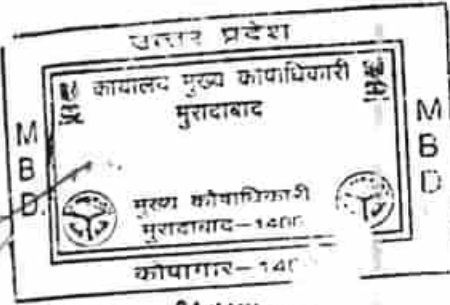 उत्तर प्रदेश
कार्यालय मुख्य कोषाधिकारी
मुरादाबाद
M
B
D.
M
B
D
मुख्य कोषाधिकारी
मुरादाबाद–1400
कोषागार–140